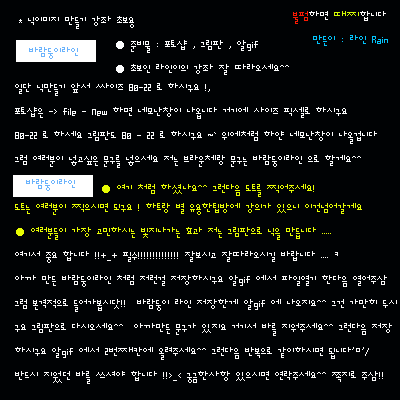 * 닉이미지 만들기 강좌 초보용
불펌하면 때찌합니다
만든이 : 라인 Rain
바람둥이라인
● 준비물 : 포토샵 , 그림판 , 알gif
● 초보인 라인이의 강좌 잘 따라오세요^^
일단 닉만들기 앞서 싸이즈 80-22 로 하시구요 !,
포토샵은 -> file - New 하면 네모난창이 나옵니다 거기에 사이즈 픽셀로 하시구요
80-22 로 하세요 그림판도 80 - 22 로 하시구요 ~` 위에처럼 하얀 네모난창이 나올겁니다
그럼 여러분이 넣고싶은 문구를 넣으세요 저는 파라운처랑 문구는 바람둥이라인 으로 할게요^^
바람둥이라인
● 여기 처럼 하셨나요^^ 그런다음 도트를 찍어주세요!
도트는 여러분이 찍으시면 되구요 ! 하트랑 별 유용한팁방에 강의가 있으니 이건넘어갈게요
● 여러분들이 가장 고민하시는 빛지나가는 효과 저는 그림판으로 닉을 만듭니다 .....
여기서 중요 합니다 !!+_+ 필수!!!!!!!!!!!!! 잘보시고 잘따라오시길 바랍니다 .... ㅋ
아까 만든 바람둥이라인 처럼 저런걸 저장하시구요 알gif 에서 파일열기 한다음 열어주삼
그럼 본격적으로 들어가봅시당!! 바람둥이 라인 저장한게 알gif 에 나오지요^^ 그건 가만히 두시
구요 그림판으로 다시오세요^^ 아까만든 문구가 있지요 거기서 바를 지어주세요^^ 그런다음 저장
하시구요 알gif 에서 2번째칸에 올려주세요^^ 그런다음 반복으로 같이하시면 됩니다'ㅁ'/
반드시 지었던 바를 쓰셔야 합니다 !!>_< 궁금한사항 있으시면 연락주세요^^ 쪽지로 주삼!!